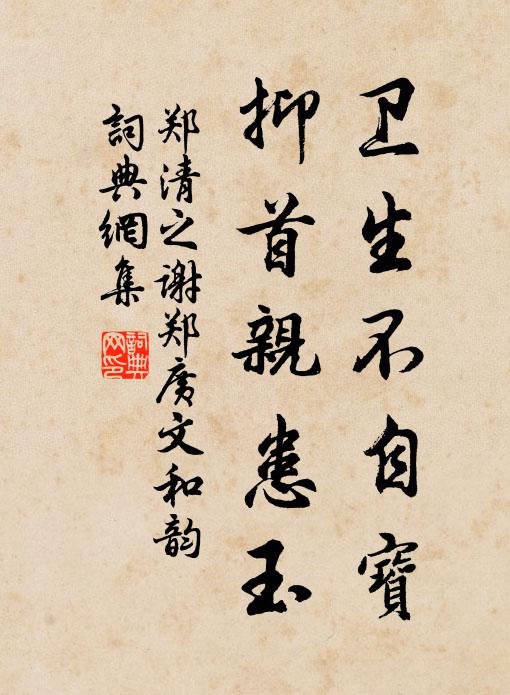 卫生不自寶
抑首親患玉
郑清之谢郑广文和韵
詞典網集
詞典網印